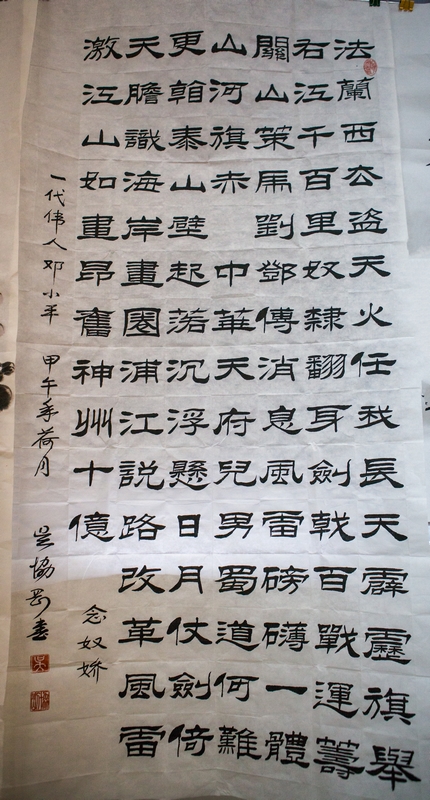 法蘭西公盜天火任我長天霹靂旗舉
石江千百里奴隸翻身劍戟百戰運籌
關山策馬劉鄧傳消息風雷磅礴一體
山河旗赤 中華天府兒男蜀道何難
更翰泰山壁起落沉浮懸日月仗劍倚
天膽識海岸畫圈浦江說路改革風雷
激江山如畫昂奮神州十億
念奴嬌
一代伟人邓小平 甲午年荷月 吴協書